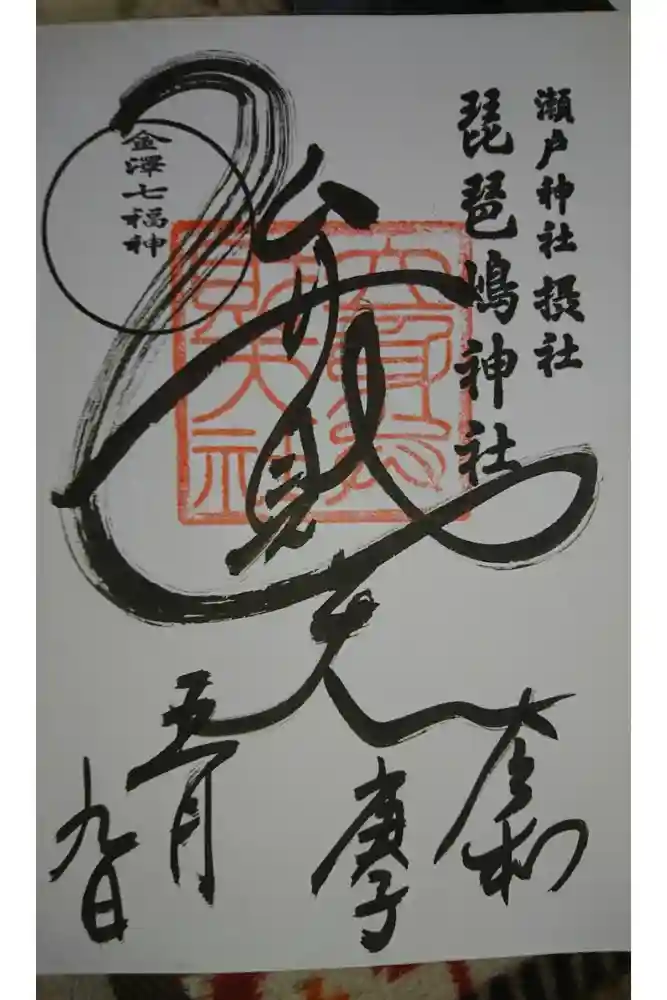 瀬戸神社摂社
琵琶嶋神社
金澤七福神
弁財天
令和
庚子
五月
九日